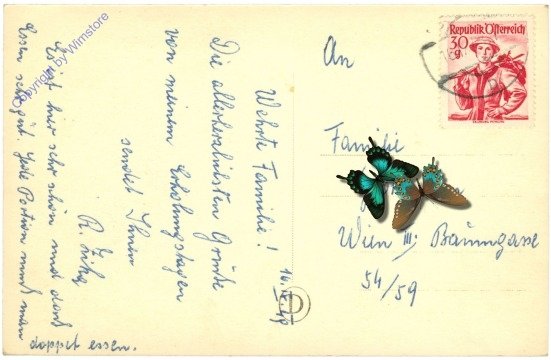 Wehrte Familie!
Die allerherzlichsten Grüße
von meinen Erholungstagen
sendet Ihnen
Es ist hier sehr schön und das
Essen sehr gut. Jede Portion muß man
doppelt essen.
An
Familie
Wien III. Baumgasse
54/59
Republik Österreich
30
g
D
Copyright by Wimstore